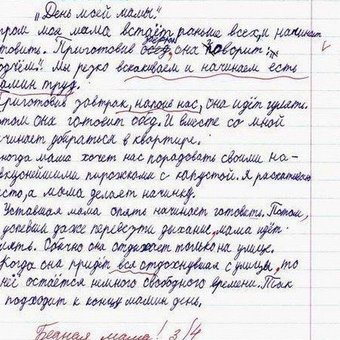 „День моей мамы“
тром моя мама встаёт раньше всех и начинает
товить. Приготовив обед, она говорит:
„Подъём“. Мы резко вскакиваем и начинаем есть
мамин труд.
Приготовив завтрак, нароив нас, она идёт гулять.
отом она готовит обед. И вместе со мной
чинает убираться в квартире.
ногда мама хочет нас порадовать своими на-
вкуснейшими пирожками с капустой. Я раскатываю
есто, а мама делает начинку.
Уставшая мама опять начинает готовить. Потом,
успевши даже перевести дыхание, мама идёт
лять. Обычно она отдыхает только на улице.
Когда она придёт вся отдохнувшая с улицы, то
ней остаётся немного свободного времени. Так
подходит к концу мамин день.
Бедная мама! 3/4